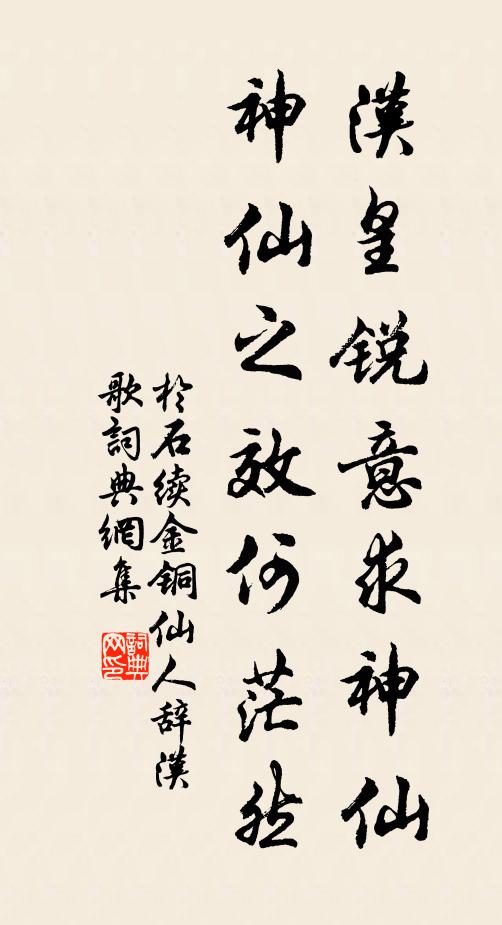 漢皇锐意求神仙
神仙之效何茫然
於石续金铜仙人辞漢
歌詞典網集
詞典网印